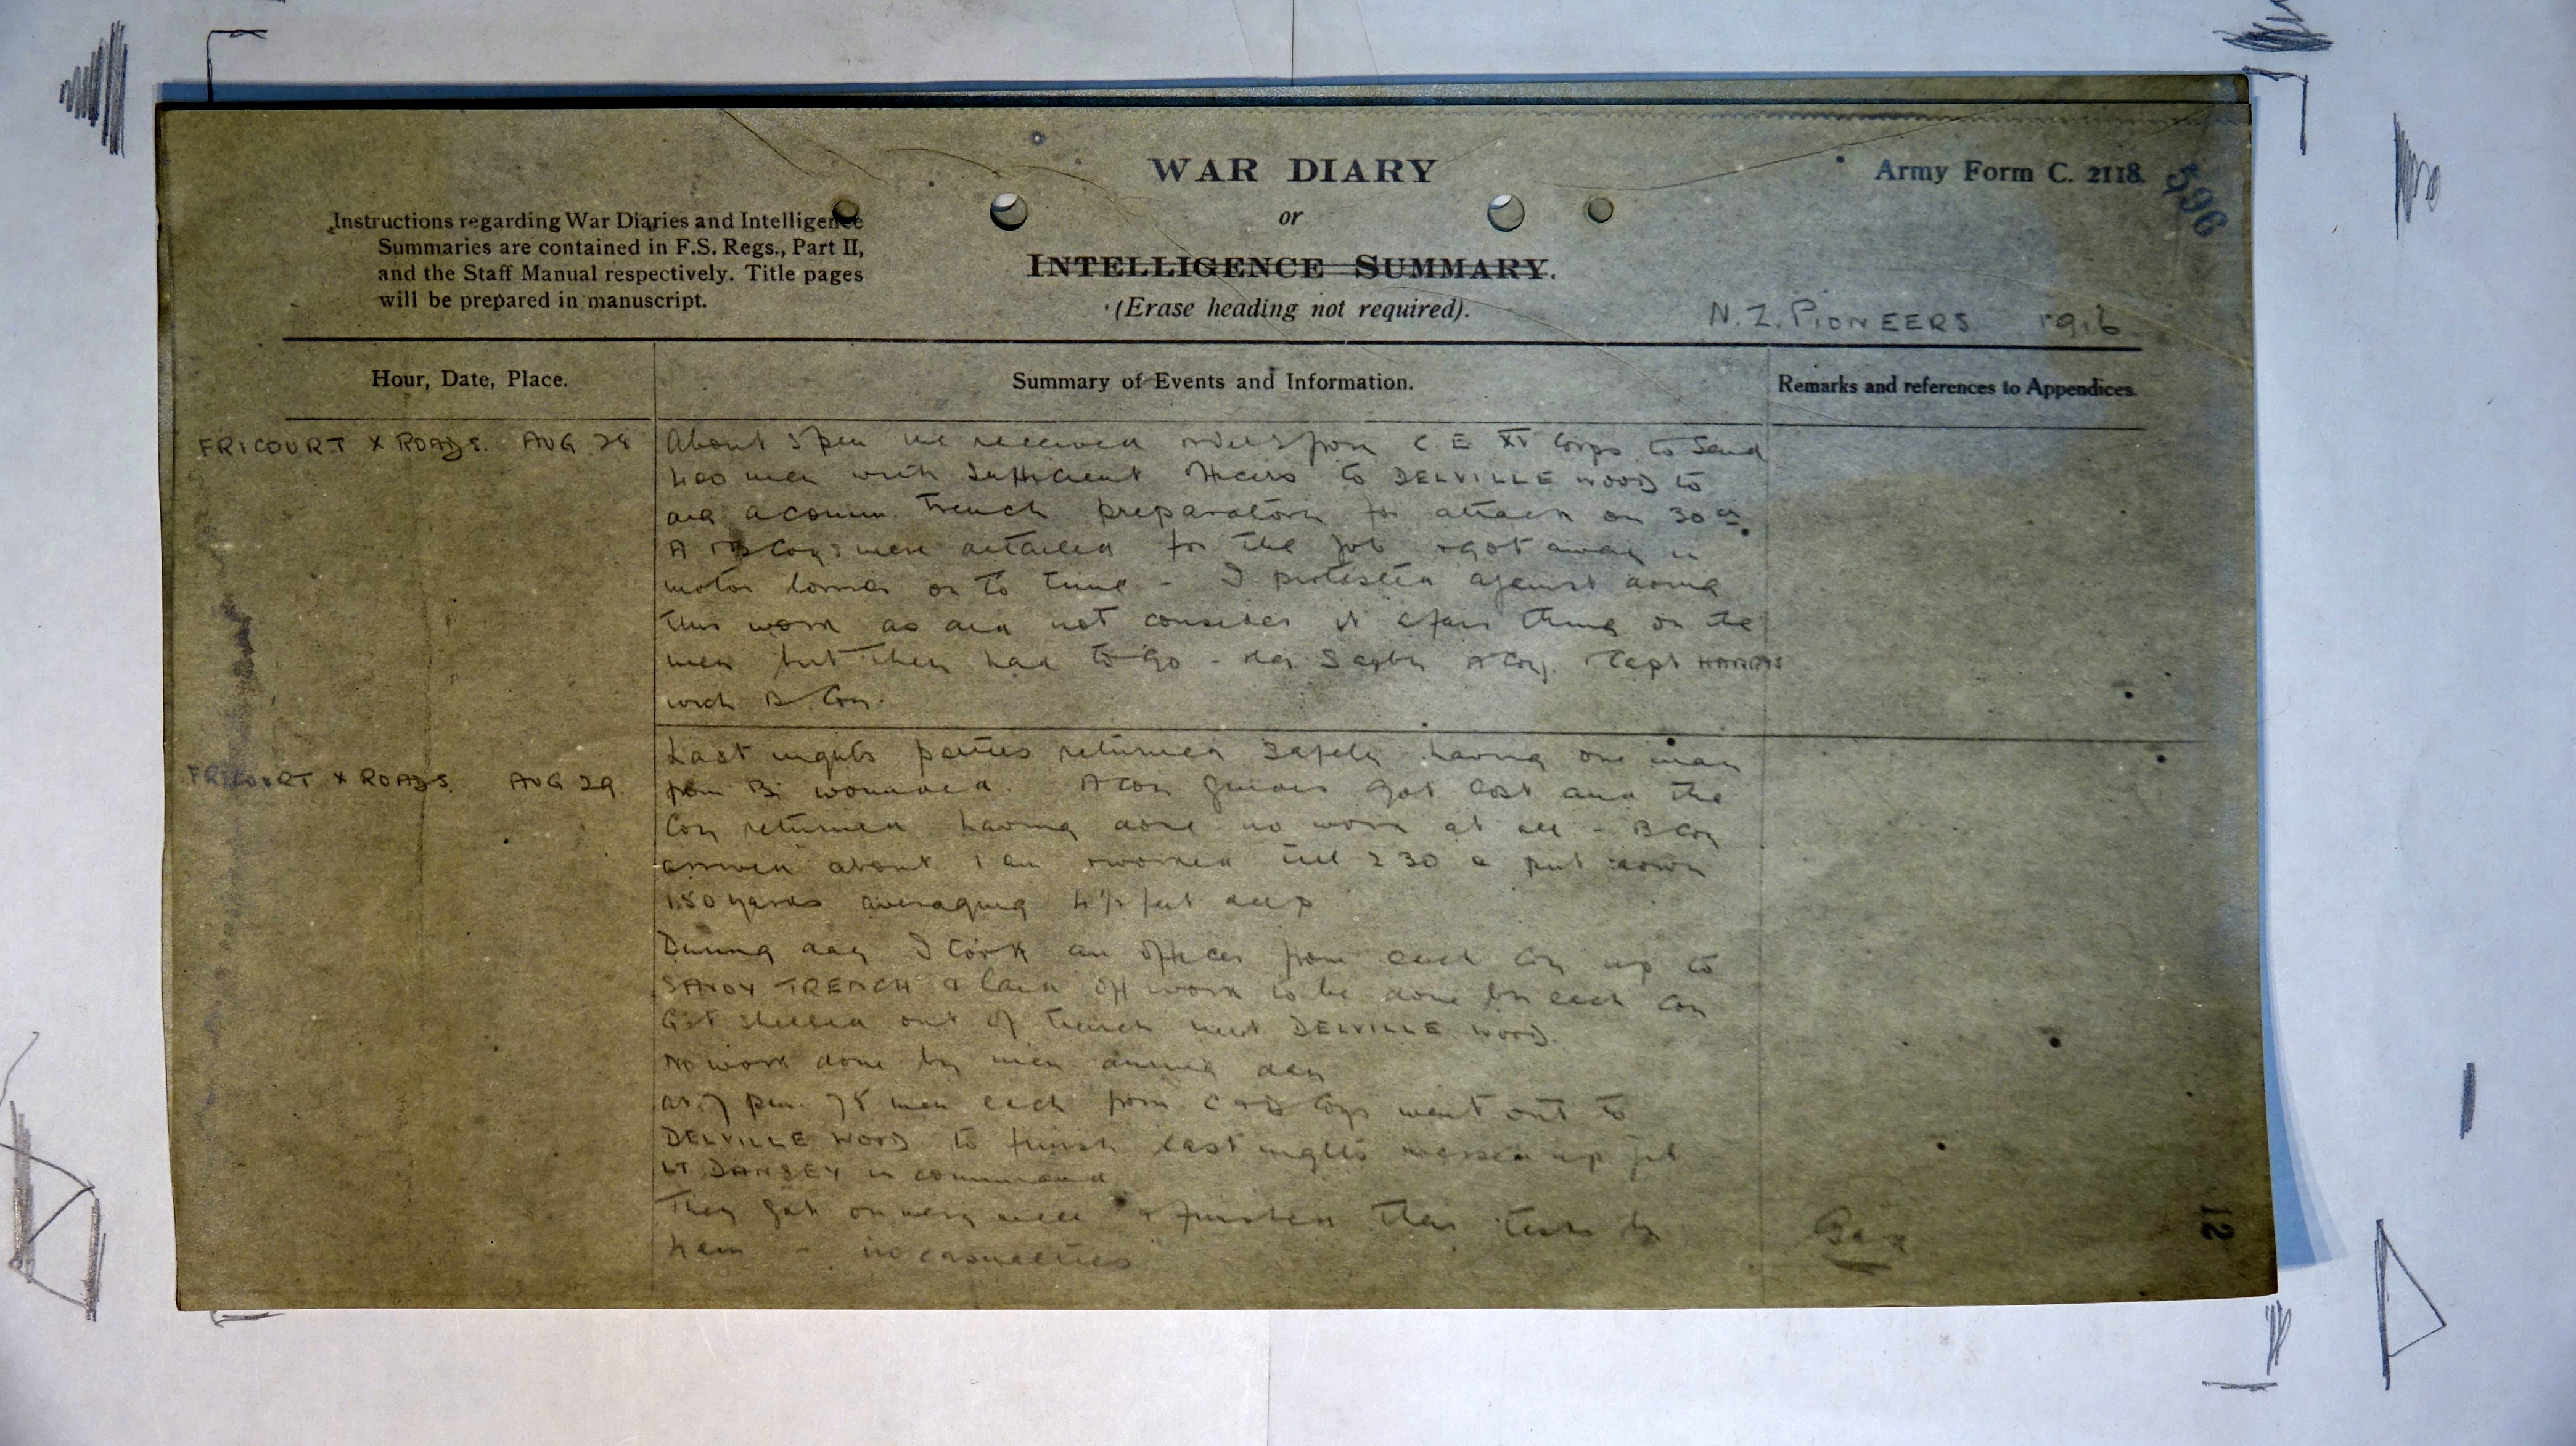 WAR DIARY
or
INTELLIGENCE SUMMARY.
(Erase heading not required).
Army Form C. 2118.
596
Instructions regarding War Diaries and Intelligence
Summaries are contained in F.S. Regs., Part II,
and the Staff Manual respectively. Title pages
will be prepared in manuscript.
N.Z. PIONEERS 1916
Hour, Date, Place.
Summary of Events and Information.
Remarks and references to Appendices.
FRICOURT X ROADS. AUG 28
About 5 pm we received orders from C.E XV Corps to send
400 men with sufficient officers to DELVILLE WOOD to
dig a comm. trench preparatory for attack on 30th.
A & B Coys were detailed for the job & got away in
motor lorries on to time - I protested against doing
this work as did not consider it a fair thing on the
men but they had to go - A Coy. Capt HARRIS
with B. Coy.
FRICOURT X ROADS. AUG 29.
Last nights parties returned safely having one man
from B wounded. A Coy guides got lost and the
Coy returned having done no work at all - B Coy
arrived about 1 am & worked till 2 30 & put down
180 yards averaging 4½ feet deep
During day I took an officer from each Coy up to
SAVOY TRENCH & laid off work to be done by each Coy
Got shelled out of trench next DELVILLE WOOD.
No work done by men during day
at 7 pm. 78 men each from C & D Coys went out to
DELVILLE WOOD to finish last nights messed up job
LT DANSEY in command
They got on very well & finished their task by
4 am - no casualties
12